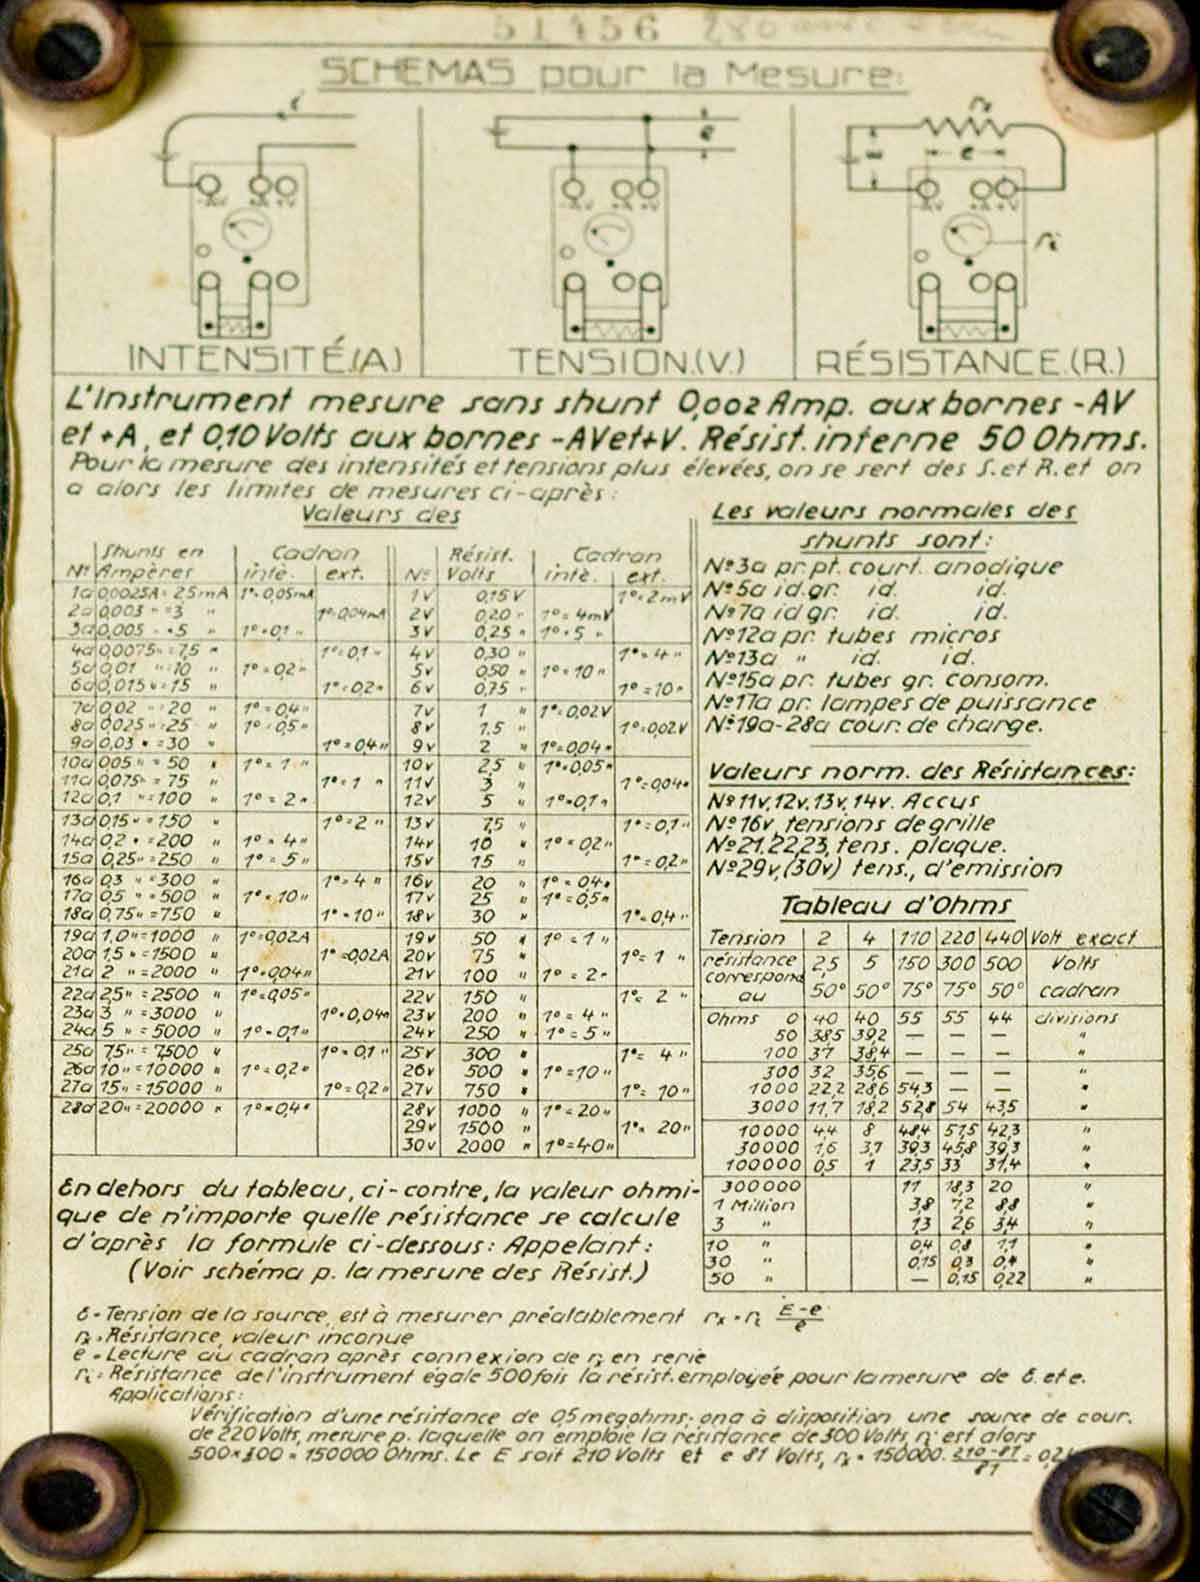 51456 280
SCHEMAS pour la Mesure:
i
e
rx
E
e
ri
-AV +A +V
-AV +A +V
-AV +A +V
INTENSITÉ.(A)
TENSION.(V.)
RÉSISTANCE.(R.)
L'Instrument mesure sans shunt 0,002 Amp. aux bornes -AV
et +A, et 0,10 Volts aux bornes -AV et +V. Résist. interne 50 Ohms.
Pour la mesure des intensités et tensions plus élevées, on se sert des S. et R. et on
a alors les limites de mesures ci-après:
Valeurs des
Shunts en Cadran Résist. Cadran
No Ampères inté. ext. No Volts inté. ext.
1a 0,0025A = 25mA 1° = 0,05mA 1v 0,15 V 1° = 2mV
2a 0,003 " = 3 " 1° = 0,04mA 2v 0,20 " 1° = 4mV
3a 0,005 " = 5 " 1° = 0,1 " 3v 0,25 " 1° = 5 "
4a 0,0075 " = 7,5 " 1° = 0,1 " 4v 0,30 " 1° = 4 "
5a 0,01 " = 10 " 1° = 0,2 " 5v 0,50 " 1° = 10 "
6a 0,015 " = 15 " 1° = 0,2 " 6v 0,75 " 1° = 10 "
7a 0,02 " = 20 " 1° = 0,4 " 7v 1 " 1° = 0,02V
8a 0,025 " = 25 " 1° = 0,5 " 8v 1.5 " 1° = 0,02V
9a 0,03 " = 30 " 1° = 0,4 " 9v 2 " 1° = 0,04 "
10a 005 " = 50 " 1° = 1 " 10v 2,5 " 1° = 0,05 "
11a 0,075 " = 75 " 1° = 1 " 11v 3 " 1° = 0,04 "
12a 0,1 " = 100 " 1° = 2 " 12v 5 " 1° = 0,1 "
13a 0,15 " = 150 " 1° = 2 " 13v 7,5 " 1° = 0,1 "
14a 0,2 " = 200 " 1° = 4 " 14v 10 " 1° = 0,2 "
15a 0,25 " = 250 " 1° = 5 " 15v 15 " 1° = 0,2 "
16a 0,3 " = 300 " 1° = 4 " 16v 20 " 1° = 0,4 "
17a 0,5 " = 500 " 1° = 10 " 17v 25 " 1° = 0,5 "
18a 0,75 " = 750 " 1° = 10 " 18v 30 " 1° = 0,4 "
19a 1,0 " = 1000 " 1° = 0,02A 19v 50 " 1° = 1 "
20a 1,5 " = 1500 " 1° = 0,02A 20v 75 " 1° = 1 "
21a 2 " = 2000 " 1° = 0,04 " 21v 100 " 1° = 2 "
22a 2,5 " = 2500 " 1° = 0,05 " 22v 150 " 1° = 2 "
23a 3 " = 3000 " 1° = 0,04 " 23v 200 " 1° = 4 "
24a 5 " = 5000 " 1° = 0,1 " 24v 250 " 1° = 5 "
25a 7,5 " = 7,500 " 1° = 0,1 " 25v 300 " 1° = 4 "
26a 10 " = 10000 " 1° = 0,2 " 26v 500 " 1° = 10 "
27a 15 " = 15000 " 1° = 0,2 " 27v 750 " 1° = 10 "
28a 20 " = 20000 " 1° = 0,4 " 28v 1000 " 1° = 20 "
29v 1500 " 1° = 20 "
30v 2000 " 1° = 40 "
Les valeurs normales des
shunts sont:
No 3a pr. pt. court. anodique
No 5a id gr. id. id.
No 7a id gr. id. id.
No 12a pr. tubes micros
No 13a " id. id.
No 15a pr. tubes gr. consom.
No 17a pr. lampes de puissance
No 19a-28a cour. de charge.
Valeurs norm. des Résistances:
No 11v, 12v, 13v, 14v. Accus
No 16v, tensions de grille
No 21, 22, 23, tens. plaque.
No 29v, (30v) tens., d'emission
Tableau d'Ohms
Tension 2 4 110 220 440 Volt exact
résistance 2,5 5 150 300 500 Volts
correspond
au 50° 50° 75° 75° 50° cadran
Ohms 0 40 40 55 55 44 divisions
50 38,5 39,2 — — — "
100 37 38,4 — — — "
300 32 35,6 — — — "
1000 22,2 28,6 54,3 — — "
3000 11,7 18,2 52,8 54 43,5 "
10000 4,4 8 48,4 51,5 42,3 "
30000 1,6 3,1 39,3 45,8 39,3 "
100000 0,5 1 23,5 33 31,4 "
300000 11 18,3 20 "
1 Million 3,8 7,2 8,8 "
3 " 1,3 2,6 3,4 "
10 " 0,4 0,8 1,1 "
30 " 0,15 0,3 0,4 "
50 " — 0,15 0,22 "
En dehors du tableau, ci-contre, la valeur ohmi-
que de n'importe quelle résistance se calcule
d'après la formule ci-dessous: Appelant:
(Voir schéma p. la mesure des Résist.)
E = Tension de la source, est à mesurer préalablement rx = ri E-e / e
rx = Résistance, valeur inconue
e = Lecture au cadran après connexion de rx en serie
ri = Résistance de l'instrument égale 500 fois la résist. employée pour la mesure de E. et e.
Applications:
Vérification d'une résistance de 0,5 megohms; on a à disposition une source de cour.
de 220 Volts, mesure p. laquelle on emploie la résistance de 300 Volts, ri est alors
500×300 = 150000 Ohms. Le E soit 210 Volts et e 81 Volts, rx = 150000. 210-81 / 81 = 0,2